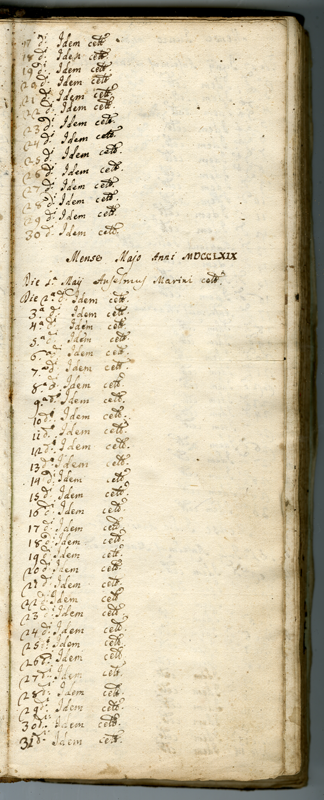 17 d.ⁱ Idem celt.
18 d.ⁱ Idem celt.
19 d.ⁱ Idem celt.
20 d.ⁱ Idem celt.
21 d.ⁱ Idem celt.
22 d.ⁱ Idem celt.
23 d.ⁱ Idem celt.
24 d.ⁱ Idem celt.
25 d.ⁱ Idem celt.
26 d.ⁱ Idem celt.
27 d.ⁱ Idem celt.
28 d.ⁱ Idem celt.
29 d.ⁱ Idem celt.
30 d.ⁱ Idem celt.
Mense Majo Anni MDCCLXIX
Die 1.ᵃ Maij Anselmus Marini celt.
Die 2.ᵃ d.ⁱ Idem celt.
3.ᵃ d.ⁱ Idem celt.
4.ᵃ d.ⁱ Idem celt.
5.ᵃ d.ⁱ Idem celt.
6.ᵃ d.ⁱ Idem celt.
7.ᵃ d.ⁱ Idem celt.
8.ᵃ d.ⁱ Idem celt.
9.ᵃ d.ⁱ Idem celt.
10 d.ⁱ Idem celt.
11 d.ⁱ Idem celt.
12 d.ⁱ Idem celt.
13 d.ⁱ Idem celt.
14 d.ⁱ Idem celt.
15 d.ⁱ Idem celt.
16 d.ⁱ Idem celt.
17 d.ⁱ Idem celt.
18 d.ⁱ Idem celt.
19 d.ⁱ Idem celt.
20 d.ⁱ Idem celt.
21 d.ⁱ Idem celt.
22 d.ⁱ Idem celt.
23 d.ⁱ Idem celt.
24 d.ⁱ Idem celt.
25 d.ⁱ Idem celt.
26 d.ⁱ Idem celt.
27 d.ⁱ Idem celt.
28 d.ⁱ Idem celt.
29 d.ⁱ Idem celt.
30 d.ⁱ Idem celt.
31 d.ⁱ Idem celt.